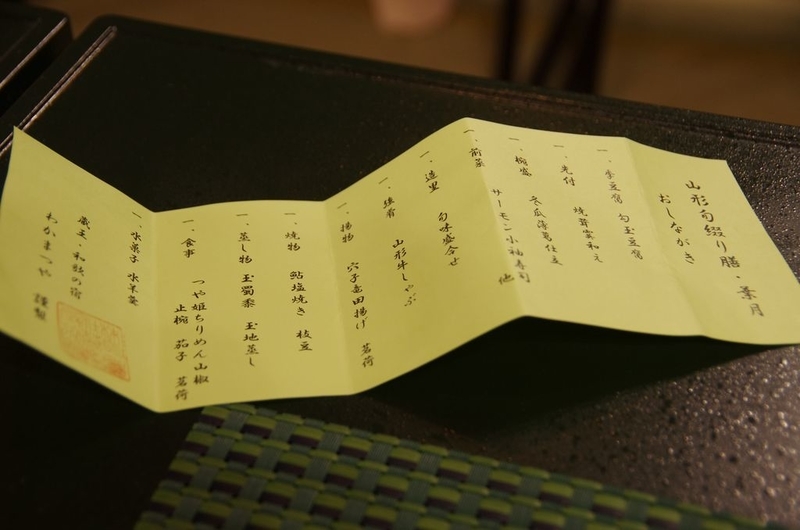 山形旬綴り膳・葉月
おしながき
一、李豆腐 勾玉豆腐
一、先付 焼茸実和え
一、椀盛 冬瓜薄葛仕立
一、前菜 サーモン小袖寿司 他
一、造里 旬味盛合せ
一、強肴 山形牛しゃぶ
一、揚物 穴子竜田揚げ 茗荷
一、焼物 鮎塩焼き 枝豆
一、蒸し物 玉蜀黍 玉地蒸し
一、食事 つや姫ちりめん山椒
止椀 茄子 茗荷
一、水菓子 水羊羹
蔵王・和歌の宿
わかまつや 謹製